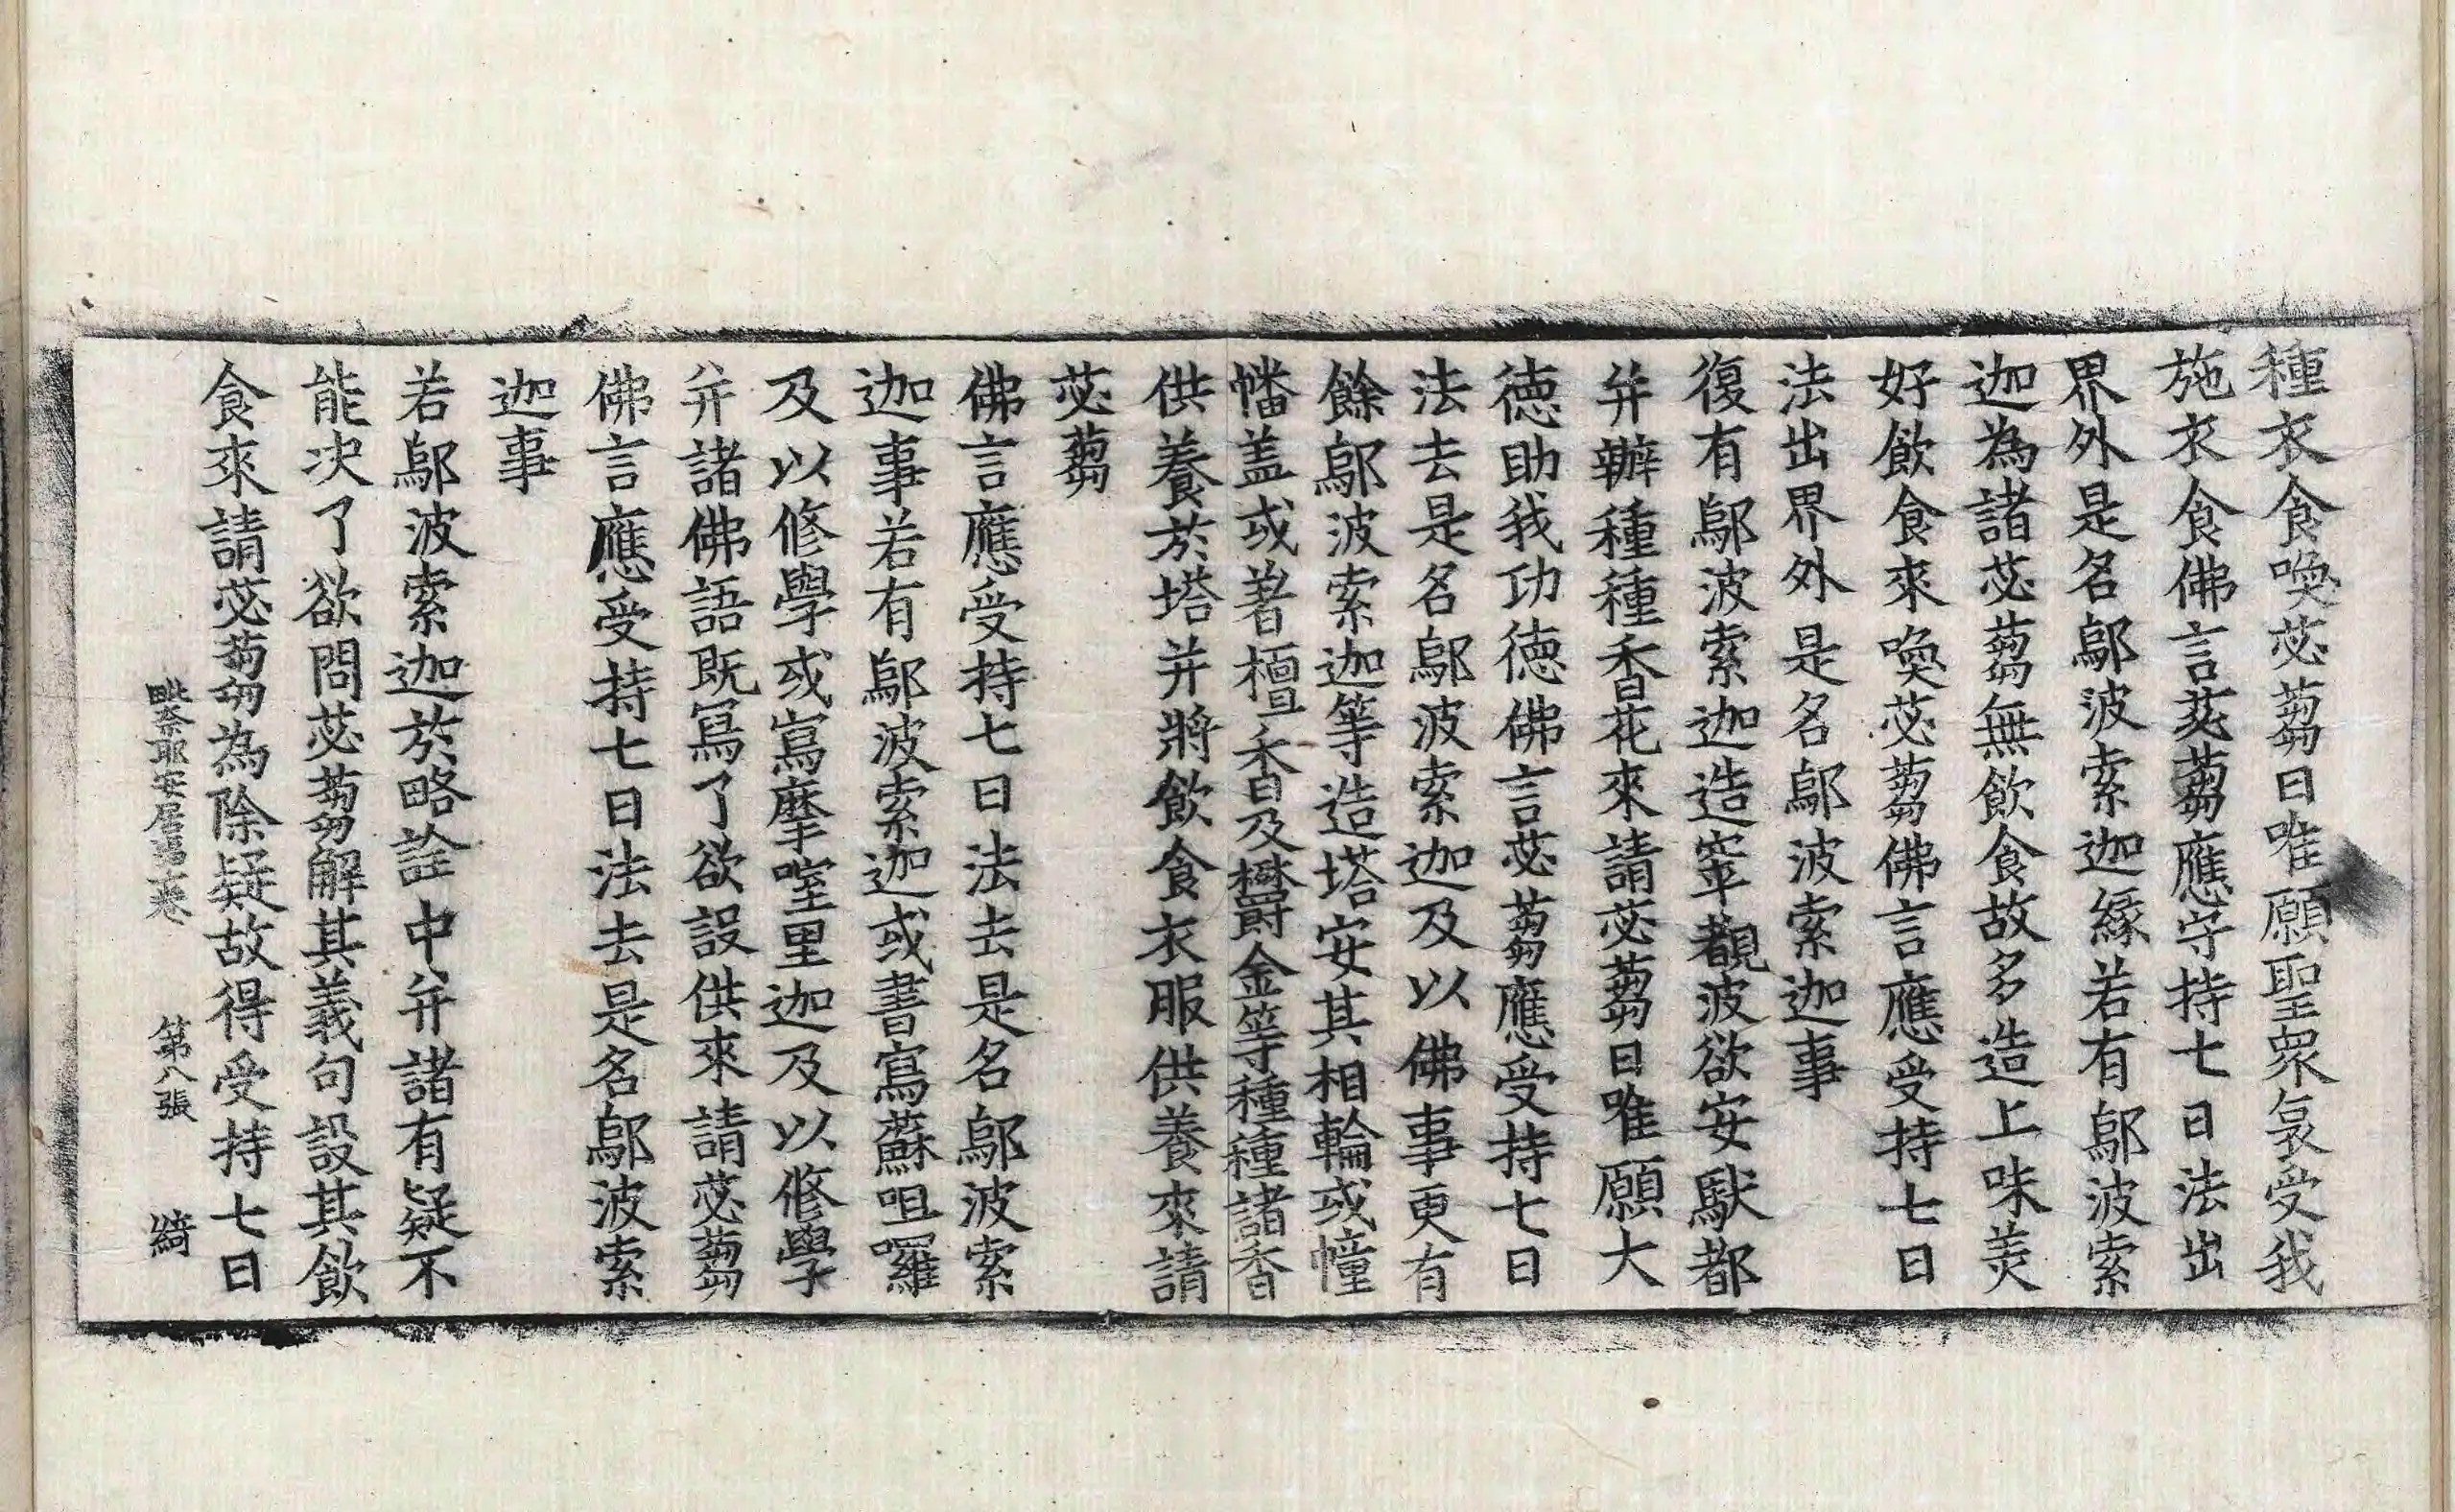 種衣食喚苾蒭曰唯願聖衆哀受我
施衣食佛言苾蒭應守持七日法出
界外是名鄔波索迦緣若有鄔波索
迦為諸苾蒭無飲食故多造上味羙
好飲食來喚苾蒭佛言應受持七日
法出界外是名鄔波索迦事
復有鄔波索迦造窣覩波欲安馱都
并辦種種香花來請苾蒭曰唯願大
徳助我功徳佛言苾蒭應受持七日
法去是名鄔波索迦及以佛事更有
餘鄔波索迦等造塔安其相輪或幢
幡盖或著檀香及欝金等種種諸香
供養於塔并將飲食衣服供養來請
苾蒭
佛言應受持七日法去是名鄔波索
迦事若有鄔波索迦或書寫蘇呾囉
及以修學或寫摩窒里迦及以修學
并諸佛語既寫了欲設供來請苾蒭
佛言應受持七日法去是名鄔波索
迦事
若鄔波索迦於略詮中并諸有疑不
能决了欲問苾蒭解其義句設其飲
食來請苾蒭為除疑故得受持七日
毗奈耶安居事一卷 第八張 綺